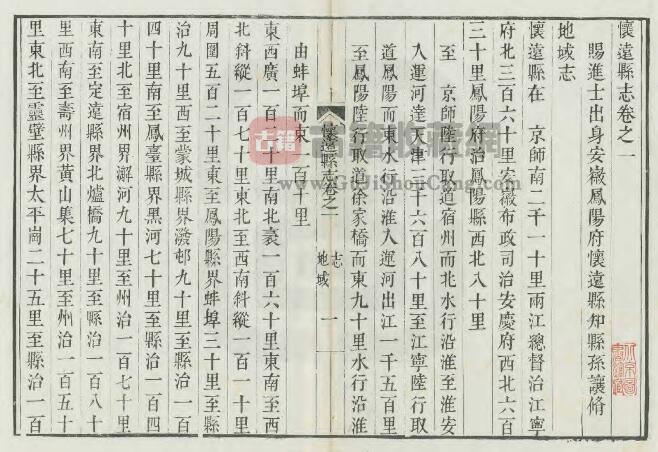 懷遠縣志卷之一
賜進士出身安徽鳳陽府懷遠縣知縣孫讓脩
地域志
懷遠縣在 京師南二千一十里兩江總督治江寧
府北三百六十里安徽布政司治安慶府西北六百
三十里鳳陽府治鳳陽縣西北八十里
至 京師陸行取道宿州而北水行沿淮至淮安
入運河達天津三千六百八十里至江寧陸行取
道鳳陽而東水行沿淮入運河出江一千五百里
至鳳陽陸行取道徐家橋而東九十里水行沿淮
由蚌埠而東一百十里
懷遠縣志卷之一
志
地域
一
東西廣一百二十里南北袤一百六十里東南至西
北斜縱一百七十里東北至西南斜縱一百一十里
周圍五百二十里東至鳳陽縣界蚌埠三十里至縣
治九十里西至蒙城縣界潑邨九十里至縣治一百
四十里南至鳳臺縣界黑河七十里至縣治一百四
十里北至宿州界澥河九十里至州治一百七十里
東南至定遠縣界北爐橋九十里至縣治一百八十
里西南至壽州界黃山集七十里至州治一百五十
里東北至靈璧縣界太平崗二十五里至縣治一百
古籍
www.GuJiShouCang.com